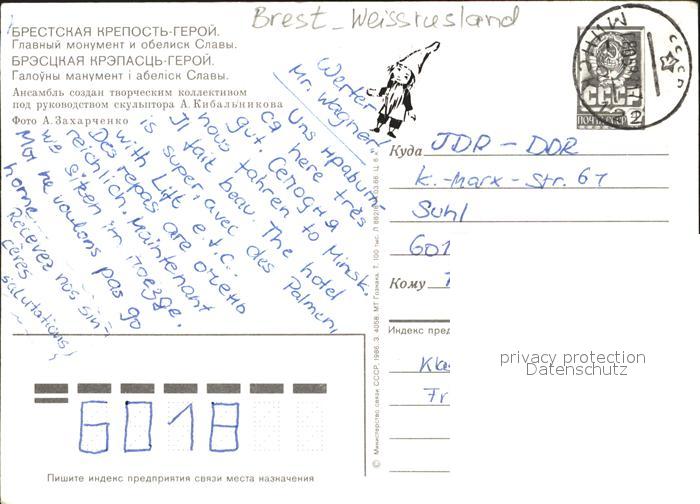 Brest-Weissrusland
БРЕСТСКАЯ КРЕПОСТЬ-ГЕРОЙ.
Главный монумент и обелиск Славы.
БРЭСЦКАЯ КРЭПАСЦЬ-ГЕРОЙ.
Галоўны манумент і абеліск Славы.
Ансамбль создан творческим коллективом
под руководством скульптора А. Кибальникова
Фото А. Захарченко
Werter
Mr. Wagner!
Uns нравит-
ся here très
gut. Сегодня
nous fahren to Minsk.
Il fait beau. The hotel
is super, avec des Palmen,
with Lift e.t.c..
Des repas are очень
reichlich. Maintenant
we sitzen im поезде.
Мы ne voulons pas go
home.
Recevez nos sin-
cères
salutations,
МИНСК
СССР
СССР
ПОЧТА СССР
Куда JDR - DDR
K.-Marx-Str. 67
Suhl
601
Кому
Индекс пред
Kla
Fr
privacy protection
Datenschutz
6018
Пишите индекс предприятия связи места назначения
© Министерство связи СССР, 1986. З. 4058. МТ Гознака. Т. 100 тыс.